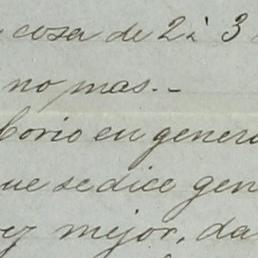 cosa de 2 à 3
no mas.-
en genera
ue se dice gen
ez mejor, da